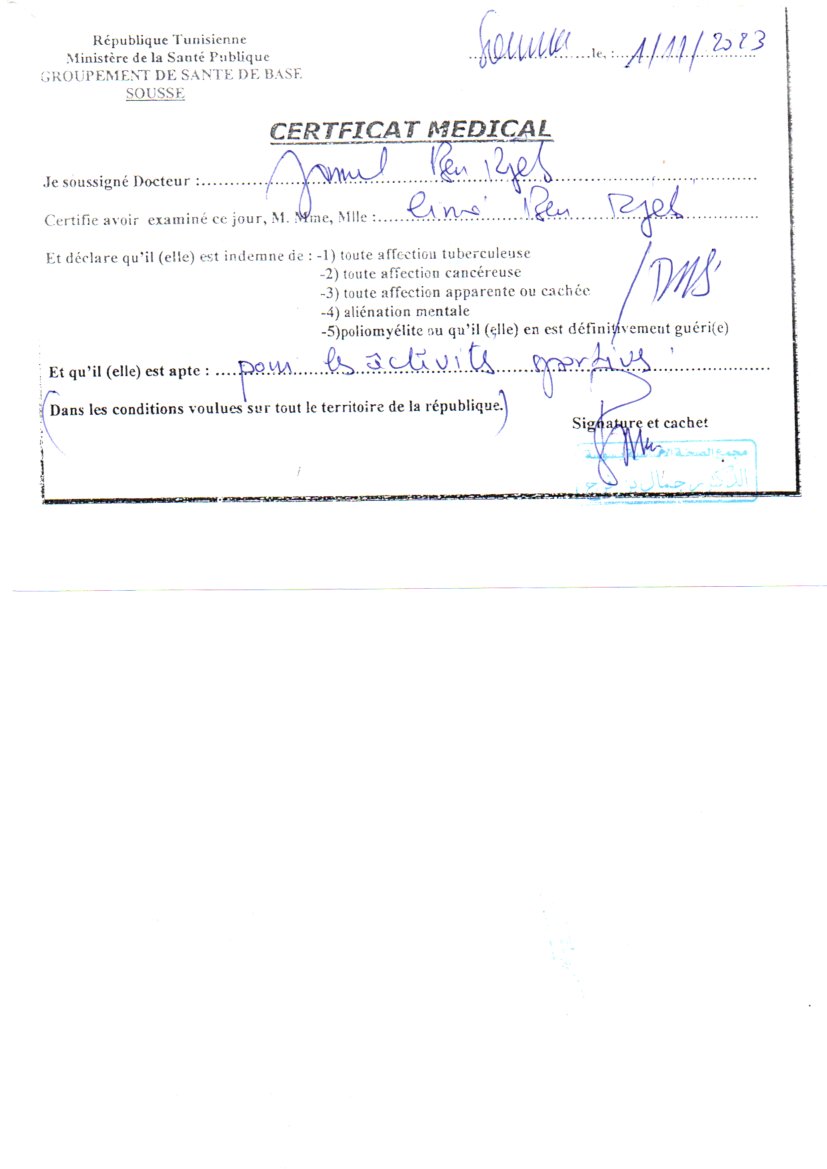 République Tunisienne
Ministère de la Santé Publique
GROUPEMENT DE SANTE DE BASE
SOUSSE
le, : 1/11/2023
CERTFICAT MEDICAL
Je soussigné Docteur : Jamel Ben Rjeb
Certifie avoir examiné ce jour, M. Mme, Mlle : Ben Rjeb
Et déclare qu'il (elle) est indemne de : -1) toute affection tuberculeuse
-2) toute affection cancéreuse
-3) toute affection apparente ou cachée
-4) aliénation mentale
-5)poliomyélite ou qu'il (elle) en est définitivement guéri(e)
Et qu'il (elle) est apte : pour les activités sportives
(Dans les conditions voulues sur tout le territoire de la république.)
Signature et cachet
مجمع الصحة